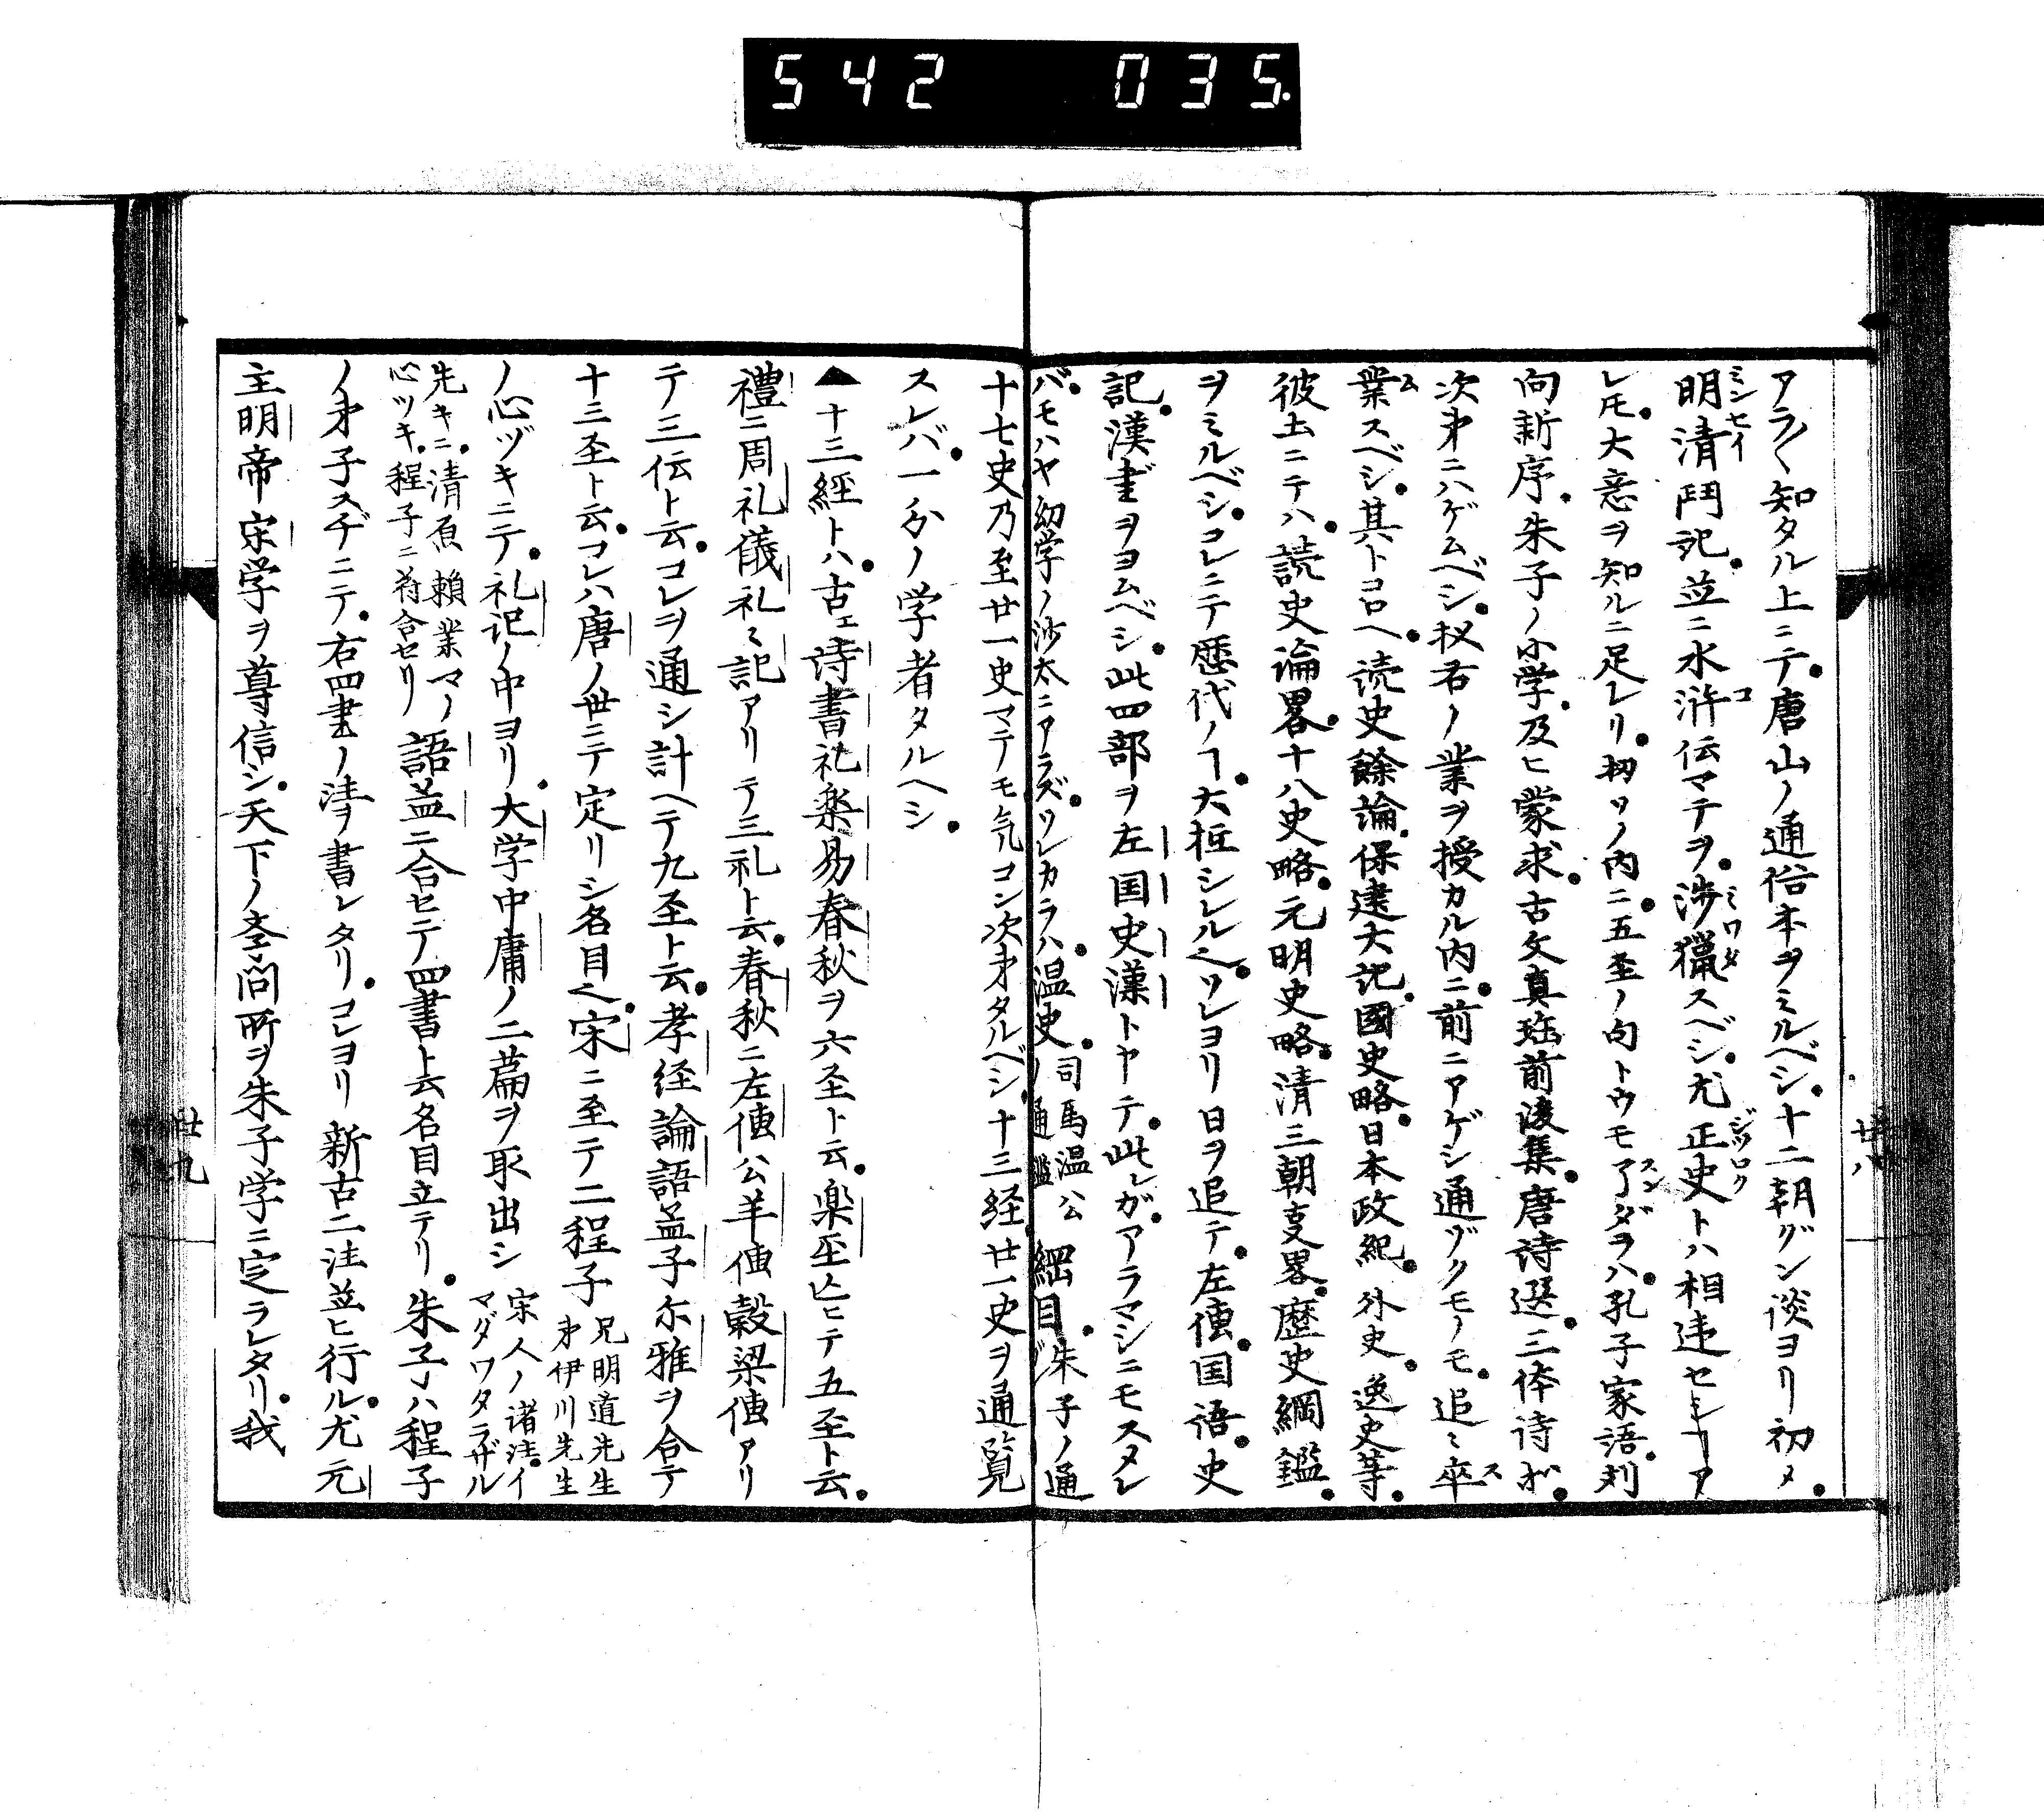 542 035.
アラ〱知タル上ニテ唐山ノ通俗本ヲミルベシ十二朝グン談ヨリ初メ
明清鬥記並ニ水滸伝マテヲ渉獵スベシ尤正史トハ相違セシヿア
レ𪜈大意ヲ知ルニ足レリ扨ソノ内ニ五巠ノ句トウモ了ダラハ孔子家語刘
向新序朱子ノ小学及ヒ蒙求古文真珤前後集唐詩選三体詩ガ
次第ニハゲムベシ扨右ノ業ヲ授カル内ニ前ニアゲシ通ヅクモノモ追〻卒
業スベシ其トコロヘ読史餘論保建大記國史略日本政紀外史逸史等
彼土ニテハ読史論畧十八史略元明史略清三朝支畧歴史綱鑑
ヲミルベシコレニテ歴代ノヿ大抵シレルヘソレヨリ日ヲ追テ左傳国語史
記漢書ヲヨムベシ此四部ヲ左国史漢トヤテ此レガアラマシニモスタレ
バモハヤ幼学ノ沙太ニアラズソレカラハ温史司馬温公ノ通鑑綱目朱子ノ通
十七史乃至廿一史マテモ気コン次第タルベシ十三経廿一史ヲ通覧
スレバ一分ノ学者タルヘシ
▲十三經トハ古ェ詩書礼楽易春秋ヲ六巠ト云楽巠亡ヒテ五巠ト云
禮ニ周礼儀礼〻記アリテ三礼ト云春秋ニ左傳公羊傳穀梁傳アリ
テ三伝ト云コレヲ通シ計ヘテ九巠ト云孝経論語孟子尓雅ヲ合テ
十三巠ト云コレハ唐ノ世ニテ定リシ名目ヘ宋ニ至テ二程子兄明道先生弟伊川先生
ノ心ヅキニテ礼记ノ中ヨリ大学中庸ノ二篇ヲ取出シ宋人ノ諸注イマダワタラザル
先キニ清原頼業マノ心ツキ程子ニ符合セリ語孟ニ合セテ四書ト云名目立テリ朱子ハ程子
ノ弟子スヂニテ右四書ノ注ヲ書レタリコレヨリ新古二注並ヒ行ル尤元
主明帝宋学ヲ尊信シ天下ノ孝問所ヲ朱子学ニ定ラレタリ我
廿八
廿九